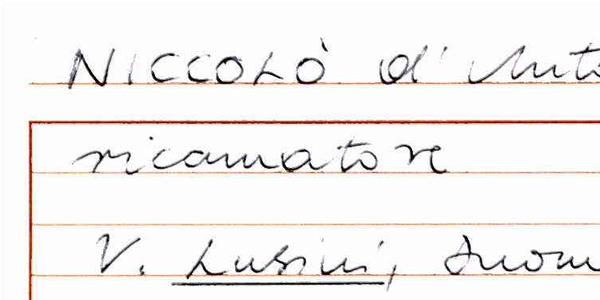 NICCOLÒ d'Anto
ricamatore
V. Lusini,